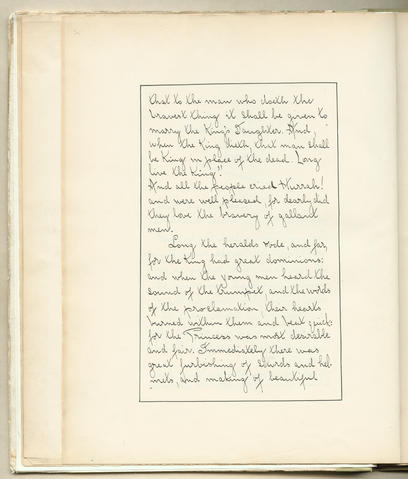 that to the man who doeth the
bravest thing it shall be given to
marry the King's Daughter. And,
when the King dieth, that man shall
be King in place of the dead. Long
live the King!"
And all the people cried Hurrah!
and were well pleased, for dearly did
they love the bravery of gallant
men.
Long the heralds rode, and far,
for the King had great dominions:
and when the young men heard the
sound of the trumpet, and the words
of the proclamation, their hearts
burned within them and beat quick:
for the Princess was most desirable
and fair. Immediately there was
great furbishing of swords and hel-
mets, and making of beautiful